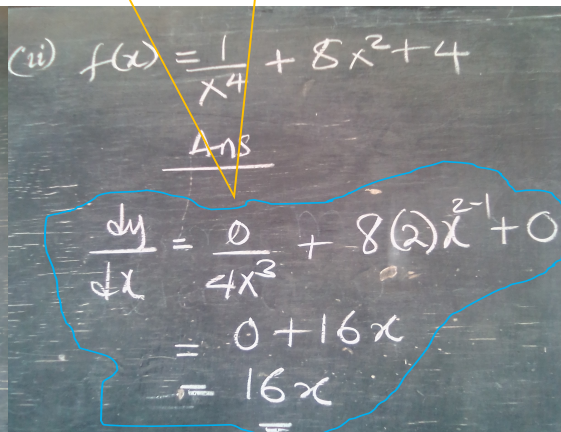 (ii) f(x) = 1/x⁴ + 8x² + 4
Ans
dy/dx = 0/4x³ + 8(2)x²⁻¹ + 0
= 0 + 16x
= 16x